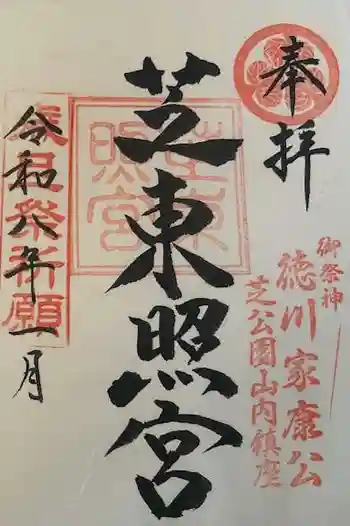 奉拝
御祭神
徳川家康公
芝公園山内鎮座
芝東照宮
芝東照宮
令和八年一月